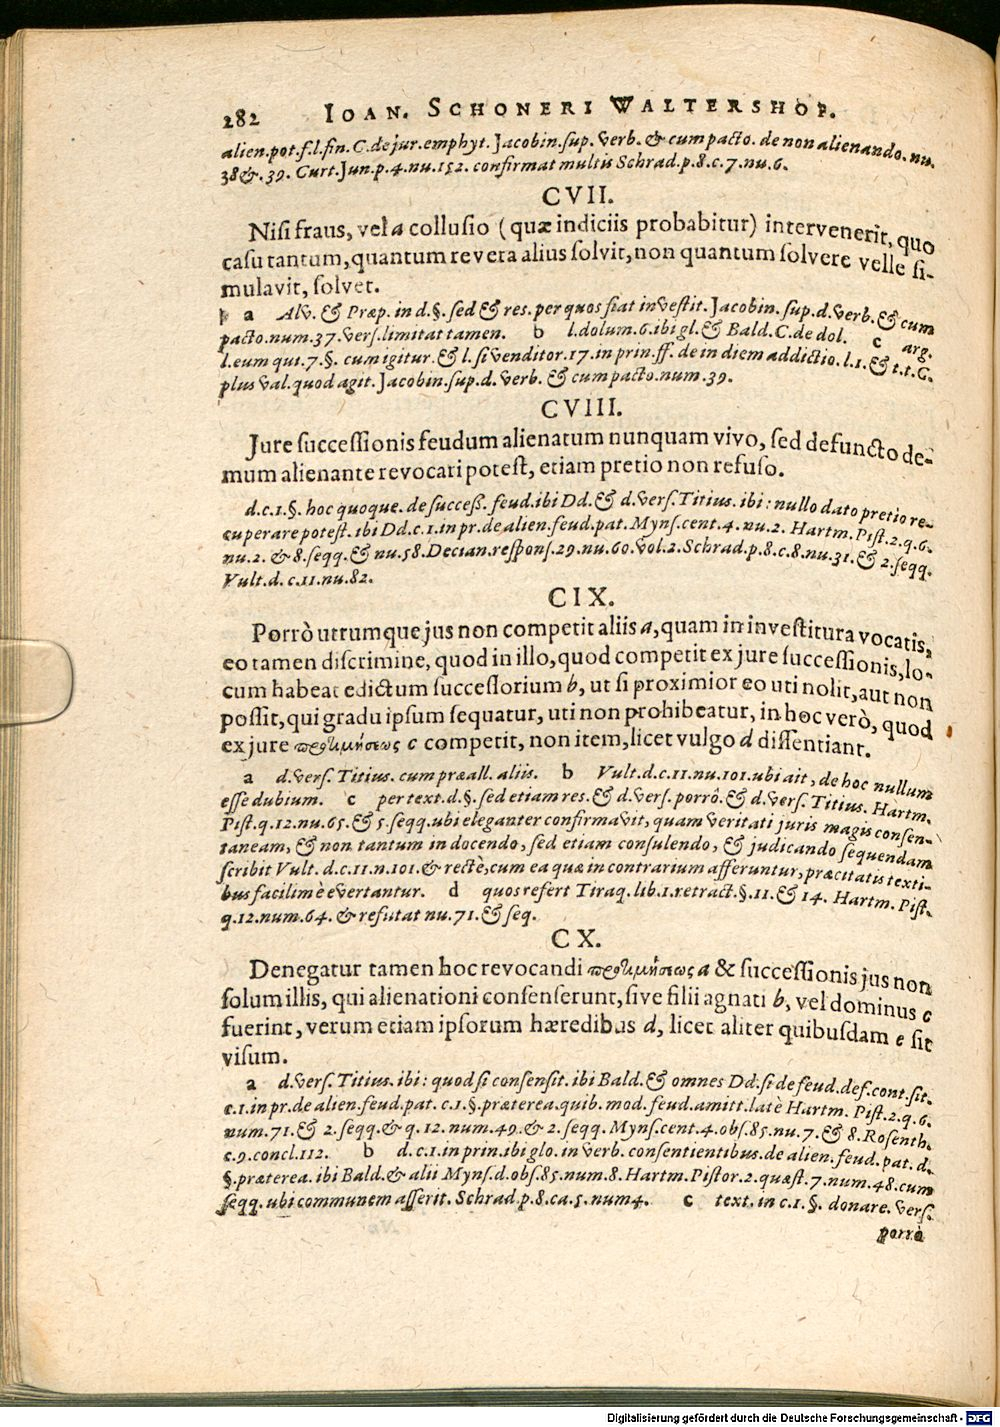 282 IOAN. SCHONERI WALTERSHOP.
alien.pot.f.l.fin.C.de jur.emphyt.Jacobin.sup. verb. & cum pacto. de non alienando. nu.
38&. 39. Curt.Jun.p.4.nu.152. confirmat multis Schrad.p.8.c.7.nu.6.
CVII.
Nisi fraus, vel a collusio (quæ indiciis probabitur) intervenerit, quo
casu tantum, quantum revera alius solvit, non quantum solvere velle si-
mulavit, solvet.
a Alv. & Præp. in d.§. sed & res. per quos fiat investit. Jacobin. sup.d.verb. & cum
pacto.num.37.vers.limitat tamen. b l.dolum.6.ibi gl.& Bald.C.de dol. c arg.
l.eum qui.7.§. cum igitur & l. si venditor.17.in prin.ff. de in diem addictio.l.1.& t.t.C.
plus val.quod agit.Jacobin.sup.d. verb. & cum pacto.num.39.
CVIII.
Jure successionis feudum alienatum nunquam vivo, sed defuncto de-
mum alienante revocari potest, etiam pretio non refuso.
d.c.1.§. hoc quoque. de success. feud.ibi Dd.& d.vers.Titius. ibi: nullo dato pretio re-
cuperare potest. ibi Dd.c.1.in pr.de alien.feud.pat.Myns.cent.4.nu.2. Hartm.Pist.2.q.6.
nu.2. & 8.seqq.& nu.58.Decian.respons.29.nu.60.vol.2.Schrad.p.8.c.8.nu.31.& 2.seqq.
Vult.d. c.11.nu.82.
CIX.
Porrò utrumque jus non competit aliis a, quam in investitura vocatis,
eo tamen discrimine, quod in illo, quod competit ex jure successionis, lo-
cum habeat edictum successorium b, ut si proximior eo uti nolit, aut non
possit, qui gradu ipsum sequatur, uti non prohibeatur, in hoc verò, quod
ex jure προτιμήσεως c competit, non item, licet vulgo d dissentiant.
a d.vers. Titius. cum præall. aliis. b Vult.d.c.11.nu.101.ubi ait, de hoc nullum
esse dubium. c per text.d.§. sed etiam res.& d.vers.porrò.& d.vers. Titius. Hartm.
Pist.q.12.nu.65.& 5.seqq.ubi eleganter confirmavit, quam veritati juris magis consen-
taneam, & non tantum in docendo, sed etiam consulendo, & judicando sequendam
scribit Vult. d.c.11.n.101.& rectè, cum ea quæ in contrarium afferuntur, præcitatis texti-
bus facilimè evertantur. d quos refert Tiraq.lib.1.retract.§.11.& 14. Hartm. Pist.
q.12.num.64. & refutat nu.71.& seq.
CX.
Denegatur tamen hoc revocandi προτιμήσεως a & successionis jus non
solum illis, qui alienationi consenserunt, sive filii agnati b, vel dominus c
fuerint, verum etiam ipsorum hæredibus d, licet aliter quibusdam e sit
visum.
a d.vers.Titius.ibi: quod si consensit. ibi Bald.& omnes Dd.si de feud.def.cont.sit.
c.1.in pr.de alien.feud.pat. c.1.§.præterea.quib. mod.feud.amitt.latè Hartm. Pist.2.q.6.
num.71.& 2.seqq.& q.12.num.49.& 2.seqq. Myns.cent.4.obs.85.nu.7.& 8.Rosenth.
c.9.concl.112. b d.c.1.in prin.ibi glo.in verb. consentientibus.de alien.feud.pat.d.
§.præterea.ibi Bald.& alii Myns.d.obs.85.num.8.Hartm.Pistor.2.quæst.7.num.48.cum
seqq.ubi communem asserit.Schrad.p.8.ca.5.num4. c text.in c.1.§. donare. vers.
porrò
Digitalisierung gefördert durch die Deutsche Forschungsgemeinschaft - DFG